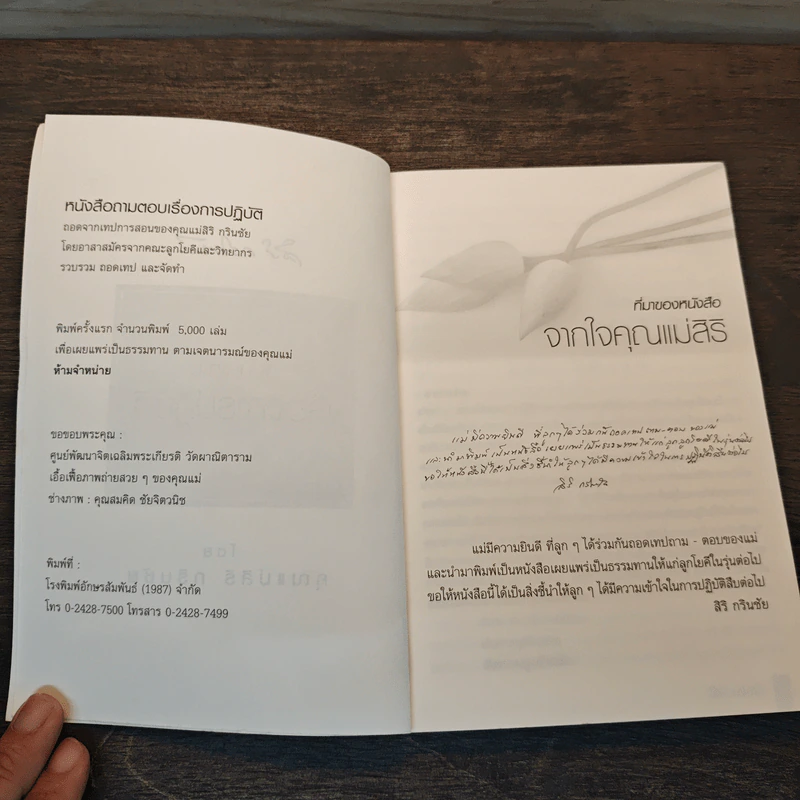 หนังสือถามตอบเรื่องการปฏิบัติ
ถอดจากเทปการสอนของคุณแม่สิริ กรินชัย
โดยอาสาสมัครจากคณะลูกโยคีและวิทยากร
รวบรวม ถอดเทป และจัดทำ
พิมพ์ครั้งแรก จำนวนพิมพ์ 5,000 เล่ม
เพื่อเผยแพร่เป็นธรรมทาน ตามเจตนารมณ์ของคุณแม่
ห้ามจำหน่าย
ขอขอบพระคุณ :
ศูนย์พัฒนาจิตเฉลิมพระเกียรติ วัดผาณิตาราม
เอื้อเฟื้อภาพถ่ายสวย ๆ ของคุณแม่
ช่างภาพ : คุณสมคิด ชัยจิตวนิช
พิมพ์ที่ :
โรงพิมพ์อักษรสัมพันธ์ (1987) จำกัด
โทร 0-2428-7500 โทรสาร 0-2428-7499
ที่มาของหนังสือ
จากใจคุณแม่สิริ
แม่มีความยินดี ที่ลูกๆได้ร่วมกันถอดเทปถาม-ตอบ ของแม่
และนำมาพิมพ์เป็นหนังสือ เผยแพร่เป็นธรรมทานให้แก่ลูกโยคีในรุ่นต่อไป
ขอให้หนังสือนี้ได้เป็นสิ่งชี้นำให้ลูกๆได้มีความเข้าใจในการปฏิบัติสืบต่อไป
สิริ กรินชัย
แม่มีความยินดี ที่ลูก ๆ ได้ร่วมกันถอดเทปถาม - ตอบของแม่
และนำมาพิมพ์เป็นหนังสือเผยแพร่เป็นธรรมทานให้แก่ลูกโยคีในรุ่นต่อไป
ขอให้หนังสือนี้ได้เป็นสิ่งชี้นำให้ลูก ๆ ได้มีความเข้าใจในการปฏิบัติสืบต่อไป
สิริ กรินชัย